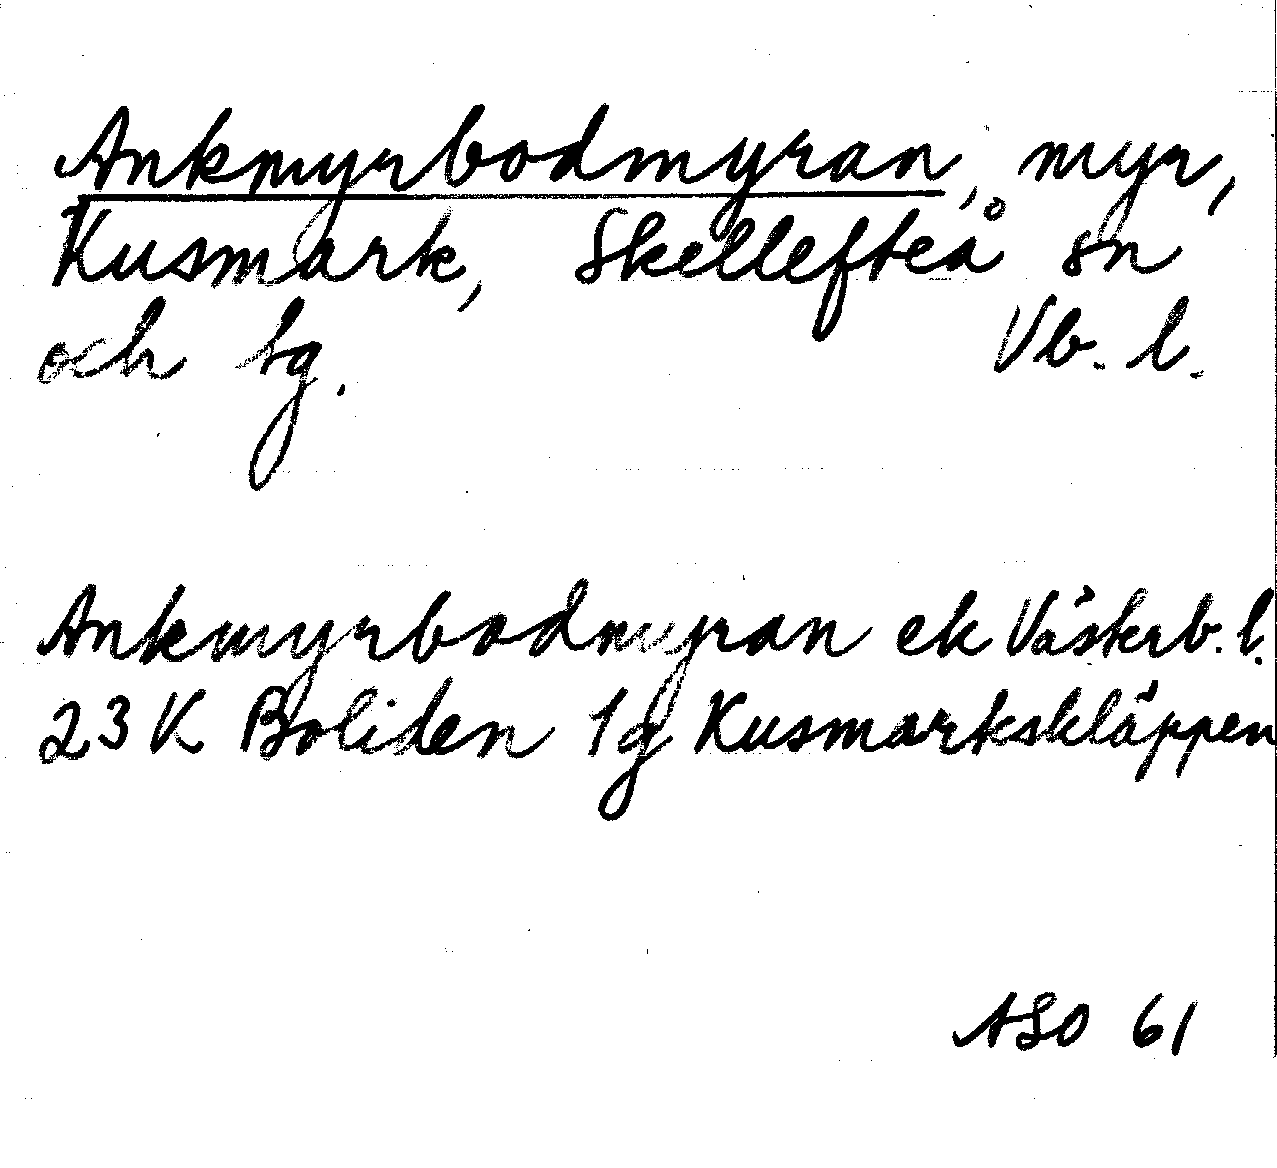 Ankmyrbodmyran, myr,
Kusmark, Skellefteå sn
och tg. Vb. l.
Ankmyrbodmyran ek Västerb. l.
23 K Boliden 1g Kusmarkskläppen
ASO 61